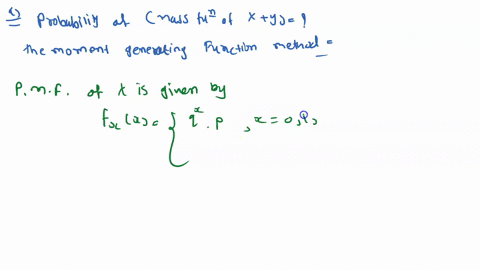 1) Probability of (mass fuⁿ of x+y) = ?
the moment generating Function method =
P.m.f. of X is given by
fx(x) = { q^x . p , x = 0, 1,